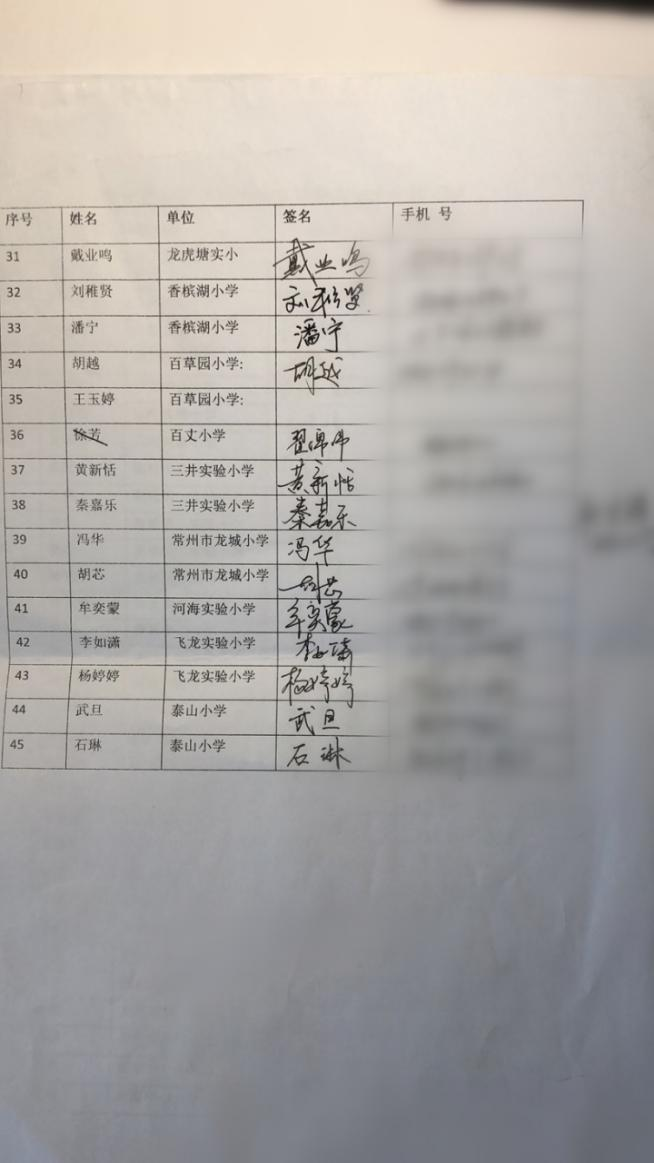 序号 姓名 单位 签名 手机 号
31 戴业鸣 龙虎塘实小 戴业鸣
32 刘稚贤 香槟湖小学 刘稚贤
33 潘宁 香槟湖小学 潘宁
34 胡越 百草园小学: 胡越
35 王玉婷 百草园小学:
36 徐芳 百丈小学
37 黄新恬 三井实验小学 黄新恬
38 秦嘉乐 三井实验小学 秦嘉乐
39 冯华 常州市龙城小学 冯华
40 胡芯 常州市龙城小学 胡芯
41 牟奕蒙 河海实验小学 牟奕蒙
42 李如潇 飞龙实验小学 李如潇
43 杨婷婷 飞龙实验小学 杨婷婷
44 武旦 泰山小学 武旦
45 石琳 泰山小学 石琳